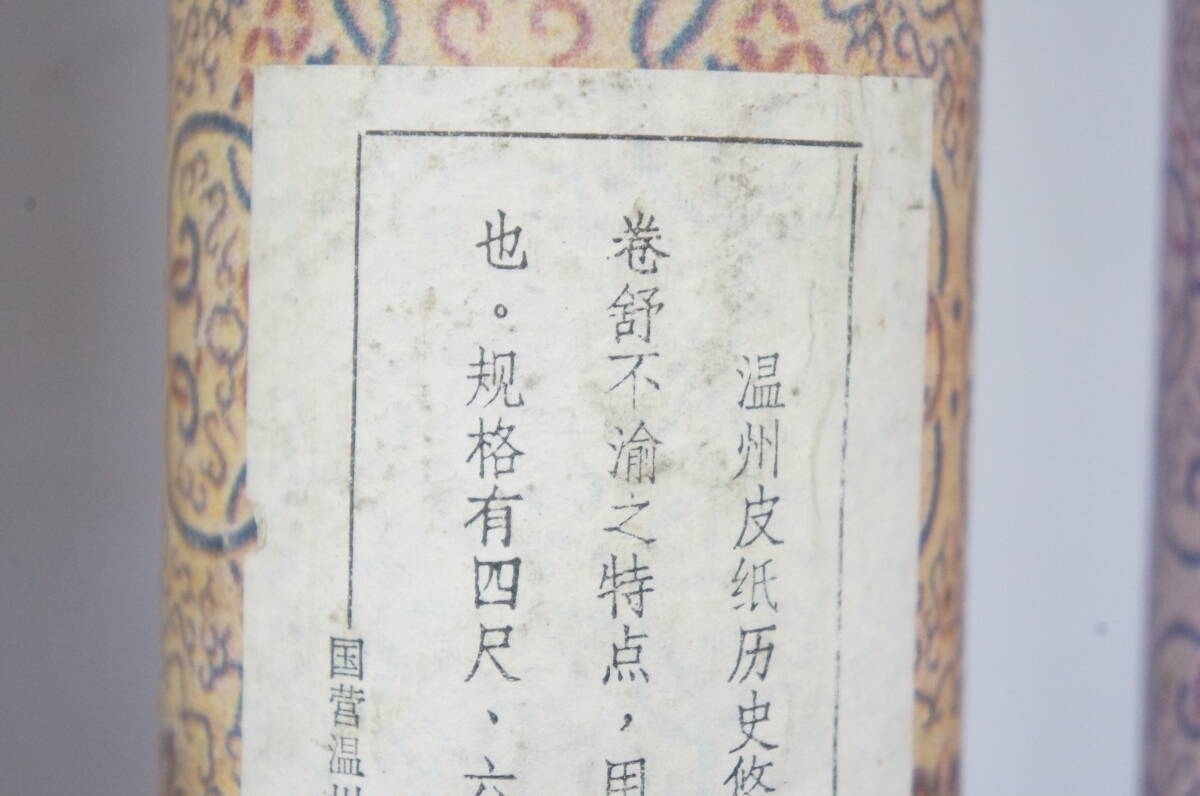 温州皮纸历史悠
卷舒不渝之特点，用
也。规格有四尺、六
国营温州